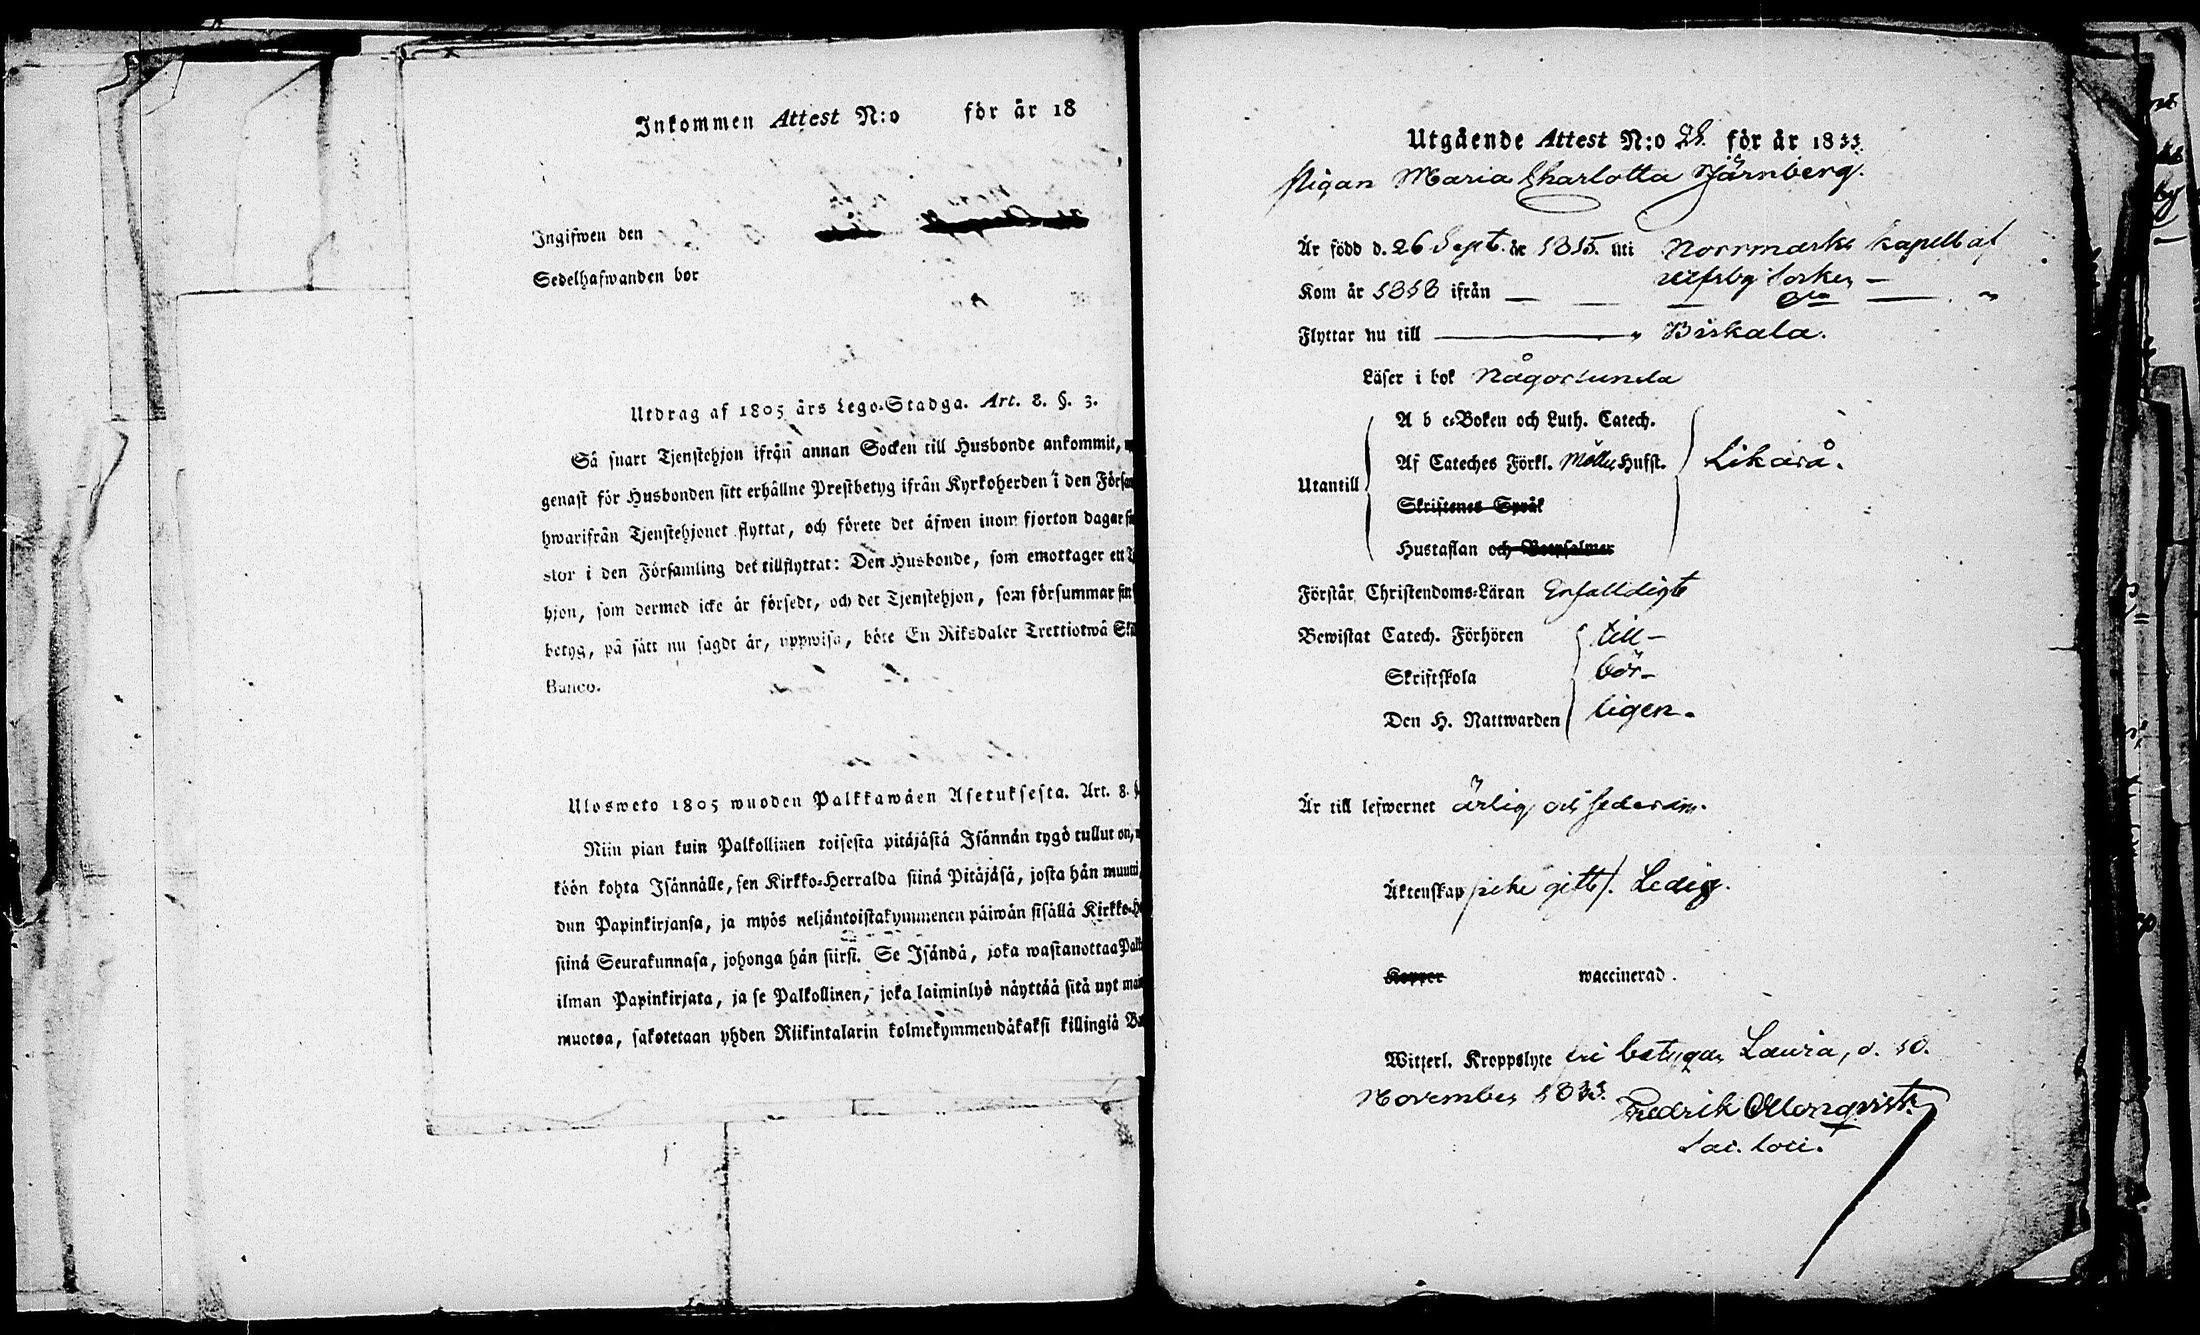 Inkommen Attest N:o för år 18
Ingifwen den
Sedelhafwanden bor
Utdrag af 1805 års Lego-Stadga. Art. 8. §. 3.
Så snart Tjenstehjon ifrån annan Socken till Husbonde ankommit,
genast för Husbonden sitt erhållne Prestbetyg ifrån Kyrkoherden i den Försam
hwarifrån Tjenstehjonet flyttat, och förete det äfwen inom fjorton dagar
stor i den Församling det tillflyttat: Den Husbonde, som emottager ett
hjon, som dermed icke är försedt, och det Tjenstehjon, som försummar sitt
betyg, på sätt nu sagdt är, uppwisa, böte En Riksdaler Trettiotwå
Banco.
Ulosweto 1805 wuoden Palkkawäen Asetuksesta. Art. 8. §
Niin pian kuin Palkollinen toisesta pitäjästä Isännän tygö tullut on,
köön kohta Isännälle, sen Kirkko-Herralda siinä Pitäjäsä, josta hän muutti,
dun Papinkirjansa, ja myös neljäntoistakymmenen päiwän sisällä Kirkko-
siinä Seurakunnasa, johonga hän siirsi. Se Isändä, joka wastanottaa
ilman Papinkirjata, ja se Palkollinen, joka laiminlyö näyttää sitä nyt
muotoa, sakotetaan yhden Riikintalarin kolmekymmendäkaksi killingiä
Utgående Attest N:o 28. för år 1833.
Pigan Maria Charlotta Stjärnberg.
Är född d. 26 Sept. år 1815. uti Norrmarks kapell af
Ulfsby Socken –
Kom år 1818 ifrån — — — Dito —
Flyttar nu till — Birkala.
Läser i bok Någorlunda
A b c-Boken och Luth. Catech.
Af Cateches Förkl. Möllers Husst. Likaså.
Utantill
Skriftenes Språk
Hustaflan och Botpsalmer
Förstår Christendoms-Läran Enfalldigt
Bewistat Catech. Förhören till-
Skriftskola bör-
Den H. Nattwarden ligen.
Är till lefwernet ärlig och sedesam.
Äktenskap icke gift). Ledig.
Koppor waccinerad.
Witterl. Kroppslyte fri betygar Lauria, d. 10.
November 1833. Fredrik
Sac. loci.